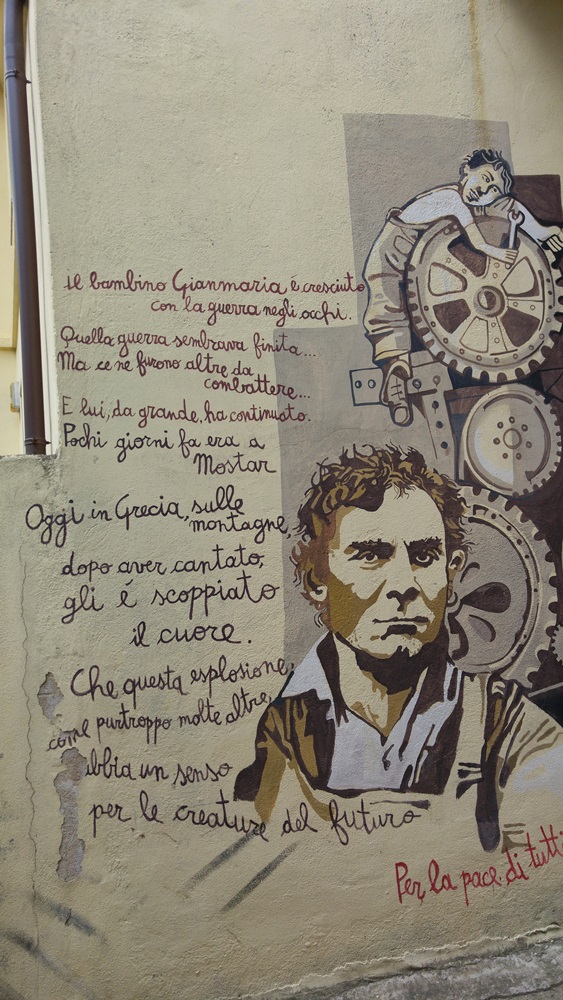 Il bambino Gianmaria é cresciuto
con la guerra negli occhi.
Quella guerra sembrava finita...
Ma ce ne furono altre da
combattere...
E lui, da grande, ha continuato.
Pochi giorni fa era a
Mostar
Oggi in Grecia, sulle
montagne,
dopo aver cantato,
gli é scoppiato
il cuore.
Che questa esplosione,
come purtroppo molte altre,
abbia un senso
per le creature del futuro
Per la pace di tutti